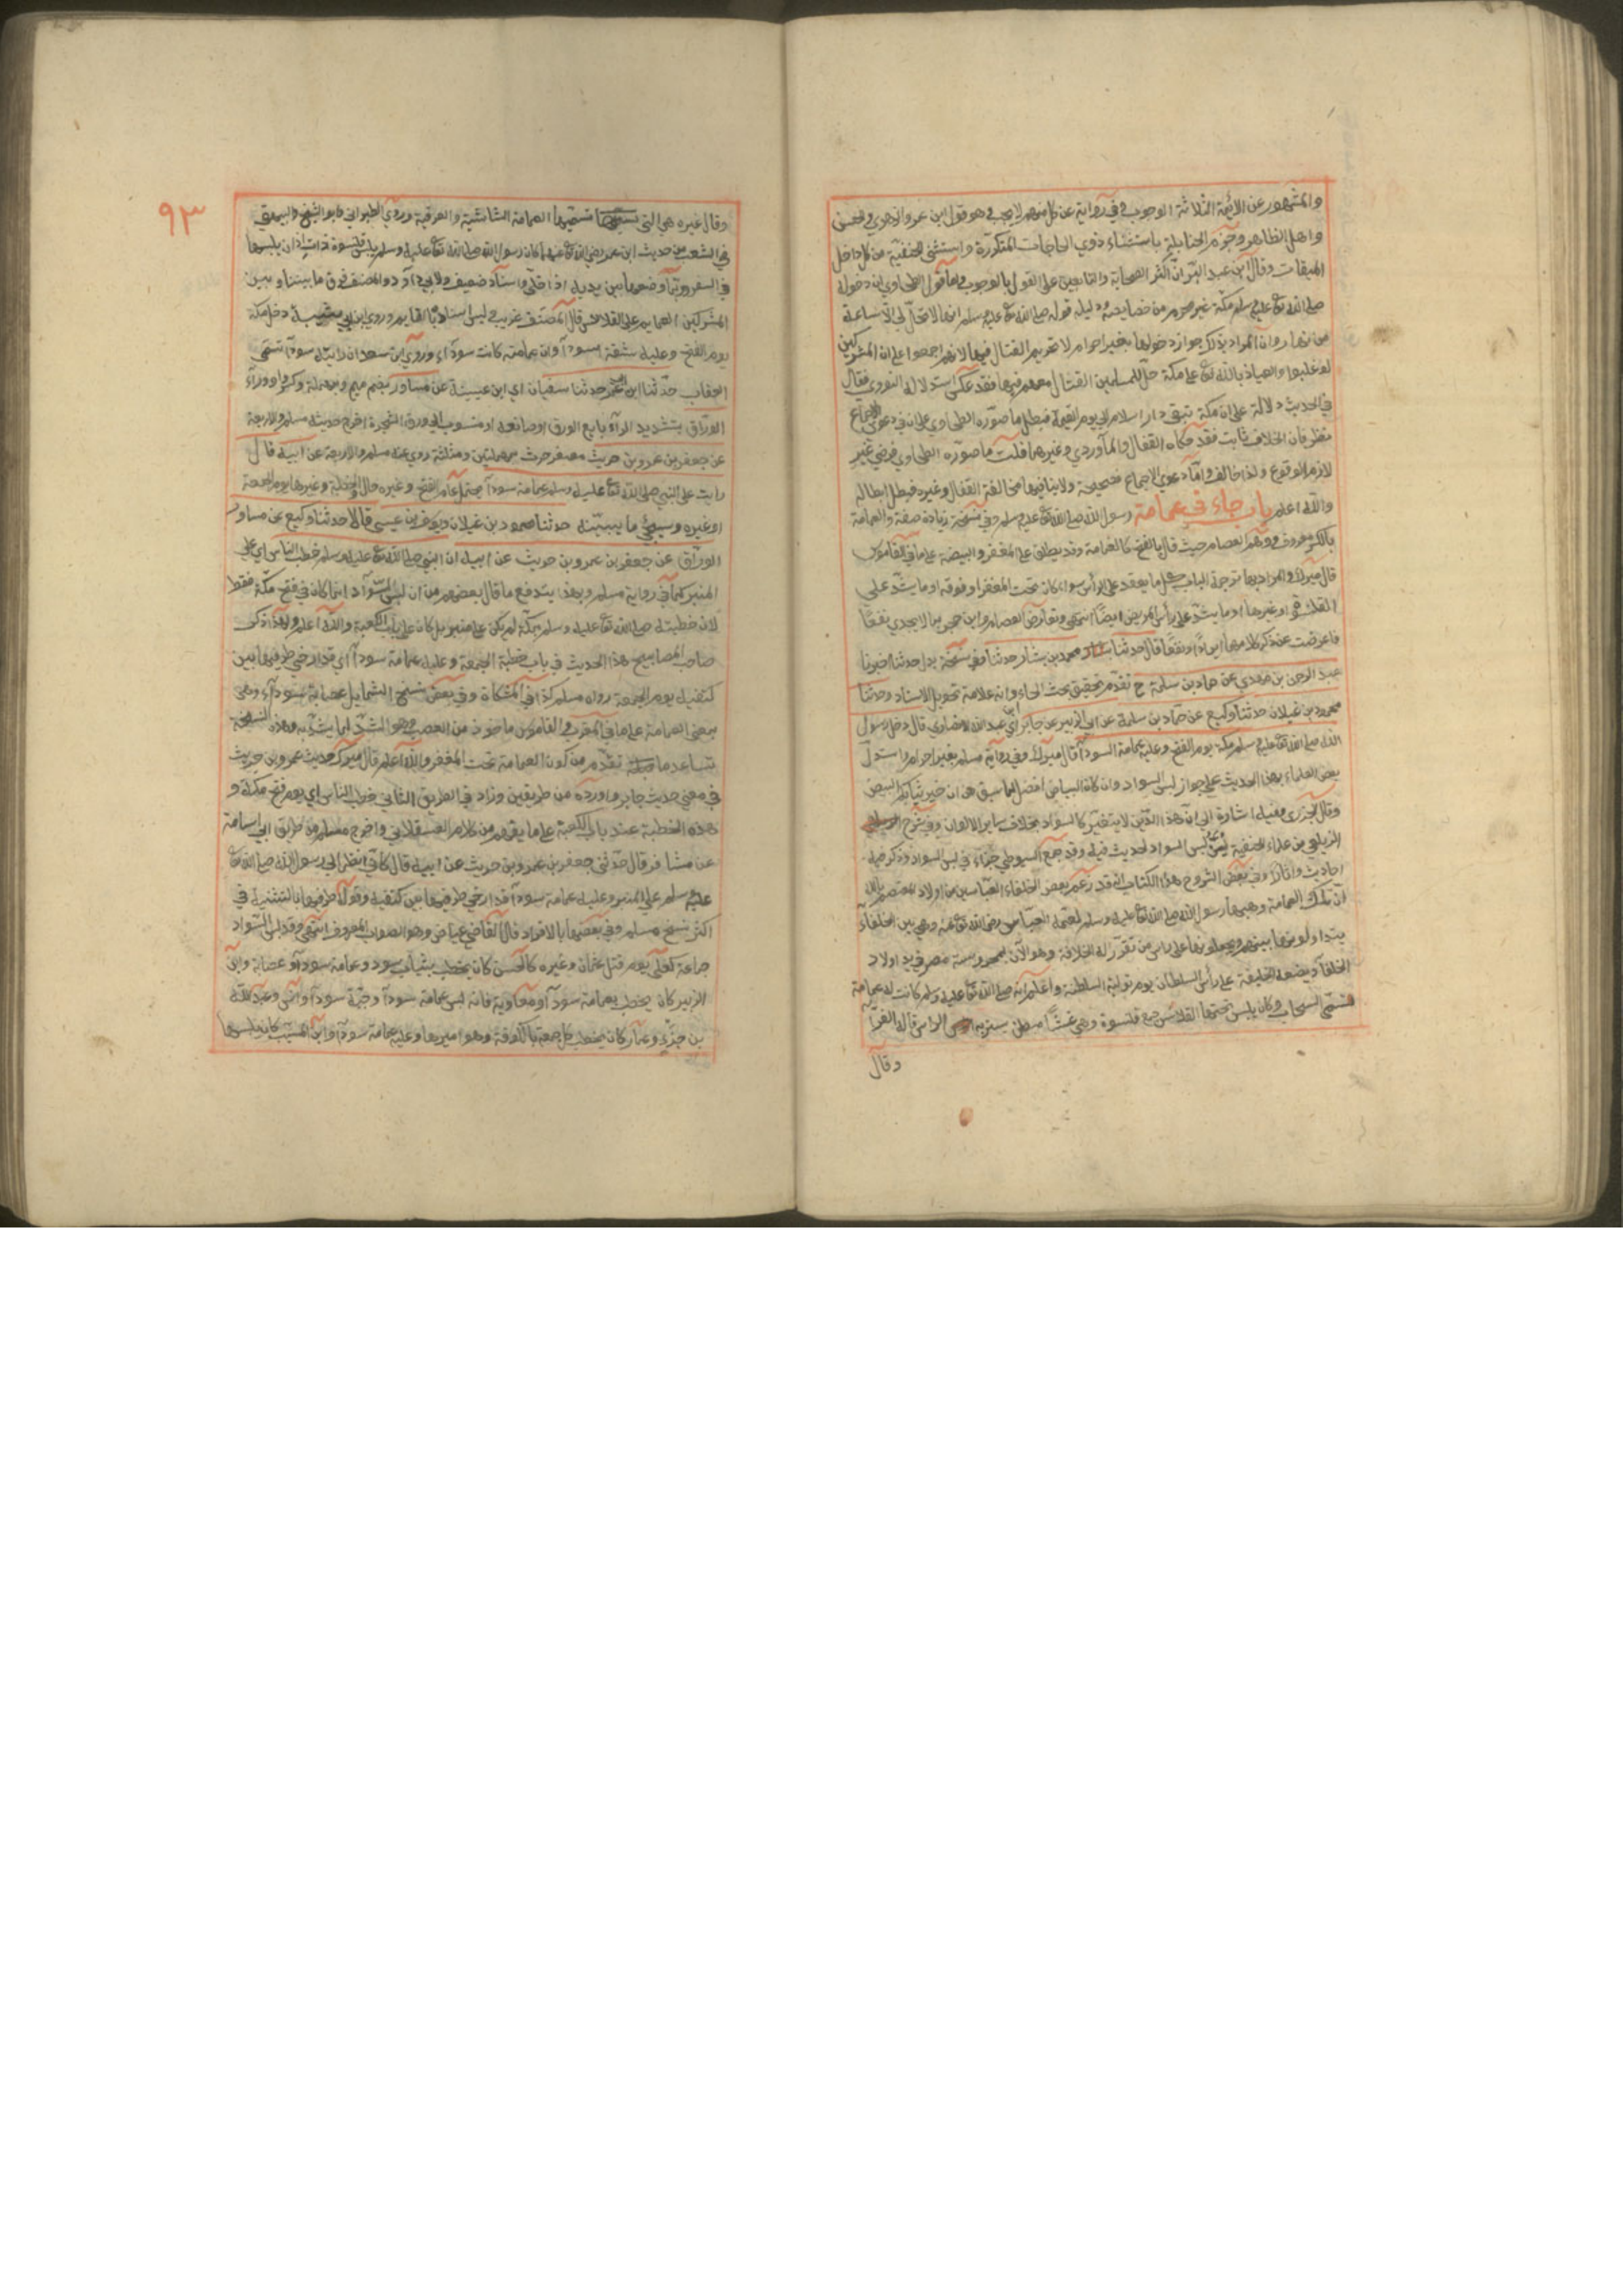 والمشهور عن الائمة الثلاثة الوجوب وفي رواية عن كل منهم لا يجب وهو قول ابن عمر والزهري والحسن
واهل الظاهر وجزم الحنابلة باستثناء ذوي الحاجات المتكررة واستثنى الحنفية من كان داخل
الميقات وقال ابن عبد البر ان اكثر الصحابة والتابعين على القول بالوجوب واما قول الطحاوي ان دخوله
صلى الله تع عليه وسلم مكة غير محرم من خصايصه ودليله قوله صلى الله تع عليه وسلم انها لا تحل لي الا ساعة
من نهار وان المراد بذلك جواز دخولها بغير احرام لا تحريم القتال فيها لانهم اجمعوا على ان المشركين
لو غلبوا والعياذ بالله تع على مكة حل للمسلمين القتال معهم فيها فقد عكس استدلاله النووي فقال
في الحديث دلالة على ان مكة تبقى دار اسلام الى يوم القيمة فبطل ما صوره الطحاوي على ان في دعوى الاجماع
نظر فان الخلاف ثابت فقد حكاه القفال والماوردي وغيرهما قلت ما صوره الطحاوي فرضي غير
لازم الوقوع ولذا خالف واما دعوى الاجماع فصحيحة ولا ينافيها مخالفة القفال وغيره فبطل ابطاله
والله اعلم باب جاء في عمامة رسول الله صلى الله تع عليه وسلم وفي نسخة زيادة صفة والعمامة
بالكسر معروف ووهم العصام حيث قال بالفتح كالغمامة وقد يطلق على المغفر والبيضة على ما في القاموس
قال ميرك والمراد بها في ترجمة الباب كل ما يعقد على الراس سواء كان تحت المغفر او فوقه او ما يشد على
القلنسوة او غيرها او ما يشد على راس المريض ايضا انتهى وتعارض العصام وابن حجر بما لا يجدي نفعا
فاعرضت عن ذكر كلامهما ايرادا ودفعا قال حدثنا محمد بن بشار حدثنا وفي نسخة بدل حدثنا اخبرنا
عبد الرحمن بن مهدي عن حماد بن سلمة ح تقدم تحقيق بحث الحاء وانه علامة تحويل الاسناد وحدثنا
محمود بن غيلان حدثنا وكيع عن حماد بن سلمة عن ابي الزبير عن جابر اي ابن عبد الله الانصاري قال دخل رسول
الله صلى الله تع عليه وسلم مكة يوم الفتح وعليه عمامة السودآ قال ميرك وفي رواية مسلم بغير احرام واستدل
بعض العلماء بهذا الحديث على جواز لبس السواد وان كان البياض افضل لما سبق من ان خير ثيابكم البيض
وقال الجزري وفيه اشارة الى ان هذا الدين لا يتغير كالسواد بخلاف ساير الالوان وفي شرح
الزيلعي من علماء الحنفية يسن لبس السواد لحديث فيه وقد جمع السيوطي جزاء في لبس السواد وذكر فيه
احاديث واثارا وفي بعض الشروح لهذا الكتاب انه قد زعم بعض الخلفاء العباسيين من اولاد المعتصم بالله
ان تلك العمامة وهبها رسول الله صلى الله تع عليه وسلم لعمه العباس رضى الله تع عنه وهي بين الخلفاء
يتداولونها بينهم ويجعلونها على راس من تقرر له الخلافة وهو الآن بمحروسة مصر في يد اولاد
الخلفآ ويضعه الخليفة على رأس السلطان يوم تولية السلطنة واعلم انه صلى الله تع عليه وسلم كانت له عمامة
تسمى السحاب وكان يلبس تحتها القلانس جمع قلنسوة وهي غشاء مبطن يستر به الراس قاله الفراء
وقال
٩٣
وقال غيره هي التي تسميها العمامة الشاشية والعرقية وروى الطبراني وابو الشيخ والبيهقي
في الشعب من حديث ابن عمر رضي الله تع عنهما كان رسول الله صلى الله تع عليه وسلم يلبس قلنسوة ذات اذان يلبسها
في السفر وربما وضعها بين يديه اذا صلى واسناده ضعيف ولابي داود والمصنف فرق ما بيننا وبين
المشركين العمايم على القلانس قال المصنف غريب ليس اسناده بالقايم وروى ابن ابي شيبة دخل مكة
يوم الفتح وعليه شقة سودآ وان عمامته كانت سودآء وروى ابن سعد ان رايته سودآ تسمى
العقاب حدثنا ابن عمر حدثنا سفيان اي ابن عيينة عن مساور بضم ميم وبمهملة وكسر واو وراء
الوراق بتشديد الرآء بايع الورق او صانعه او منسوب الى ورق الشجرة اخرج حديثه مسلم والاربعة
عن جعفر بن عمرو بن حريث مصغر حرث بمهملتين ومثلثة روى عنه مسلم والاربعة عن ابيه قال
رايت على النبي صلى الله تع عليه وسلم عمامة سودآ يحتمل عام الفتح وغيره حال الخطبة وغيرها يوم الجمعة
او غيره وسيجئ ما يبينه حدثنا محمود بن غيلان ويوسف بن عيسى قالا حدثنا وكيع عن مساور
الوراق عن جعفر بن عمرو بن حريث عن ابيه ان النبي صلى الله تع عليه وسلم خطب الناس اي على
المنبر كما في رواية مسلم وبهذا يندفع ما قال بعضهم من ان لبس السواد انما كان في فتح مكة فقط
لان خطبته صلى الله تع عليه وسلم بمكة لم يكن على منبر بل كان على باب الكعبة والله اعلم ولهذا ذكر
صاحب المصابيح هذا الحديث في باب خطبة الجمعة وعليه عمامة سودآ اي قد ارخى طرفيها بين
كتفيه يوم الجمعة رواه مسلم كذا في المشكاة وفي بعض نسخ الشمايل عصابة سودآء وهي
بمعنى العمامة على ما في المغرب والقاموس ماخوذ من العصب وهو الشد لما يشد به وهذه النسخة
تساعد ما تقدم من كون العمامة تحت المغفر والله اعلم قال ميرك حديث عمرو بن حريث
في معنى حديث جابر واورده من طريقين وزاد في الطريق الثاني خطب الناس اي يوم فتح مكة و
هذه الخطبة عند باب الكعبة على ما يفهم من كلام العسقلاني واخرج مسلم من طريق ابي اسامة
عن مساور قال حدثني جعفر بن عمرو بن حريث عن ابيه قال كاني انظر الى رسول الله صلى الله تع
عليه وسلم على المنبر وعليه عمامة سودآ قد ارخى طرفيها بين كتفيه وقوله طرفيها بالتثنية في
اكثر نسخ مسلم وفي بعضها بالافراد قال القاضي عياض وهو الصواب المعروف انتهى وقد لبس السواد
جماعة كعلي يوم قتل عثمان وغيره كالحسن كان يخطب بثياب سود وعمامة سودآ وعصابة وابن
الزبير كان يخطب بعمامة سودآ ومعاوية فانه لبس عمامة سودآ وجبة سودآ وانس وعبد الله
بن جزء وعمار كان يخطب كل جمعة بالكوفة وهو اميرها وعليه عمامة سودآ وابن المسيب كان يلبسها